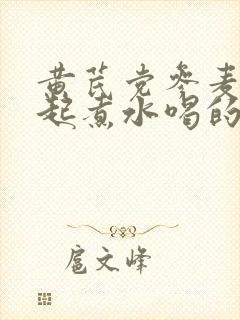 黄芪党参麦
起煮水喝的
扈文峰